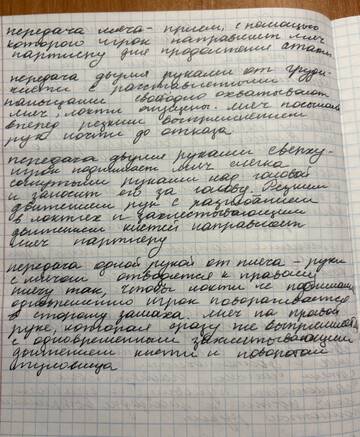 передача мяча - прием, с помощью
которого игрок направляет мяч
партнеру для продолжения атаки
передача двумя руками от груди -
кисти с расставленными
пальцами свободно охватывают
мяч, локти опущены. мяч посылают
вперед резким выпрямлением
рук почти до отказа
передача двумя руками сверху -
игрок поднимает мяч слегка
согнутыми руками над головой
и заносит его за голову. Резким
движением рук с разгибанием
в локтях и захлестывающим
движением кистей направляет
мяч партнеру
передача одной рукой от плеча - руки
с мячом отводятся к правому
плечу так, чтобы локти не поднимались
одновременно игрок поворачивается
в сторону замаха. мяч на правой
руке, которая сразу же выпрямляется
с одновременным захлестывающим
движением кисти и поворотом
туловища